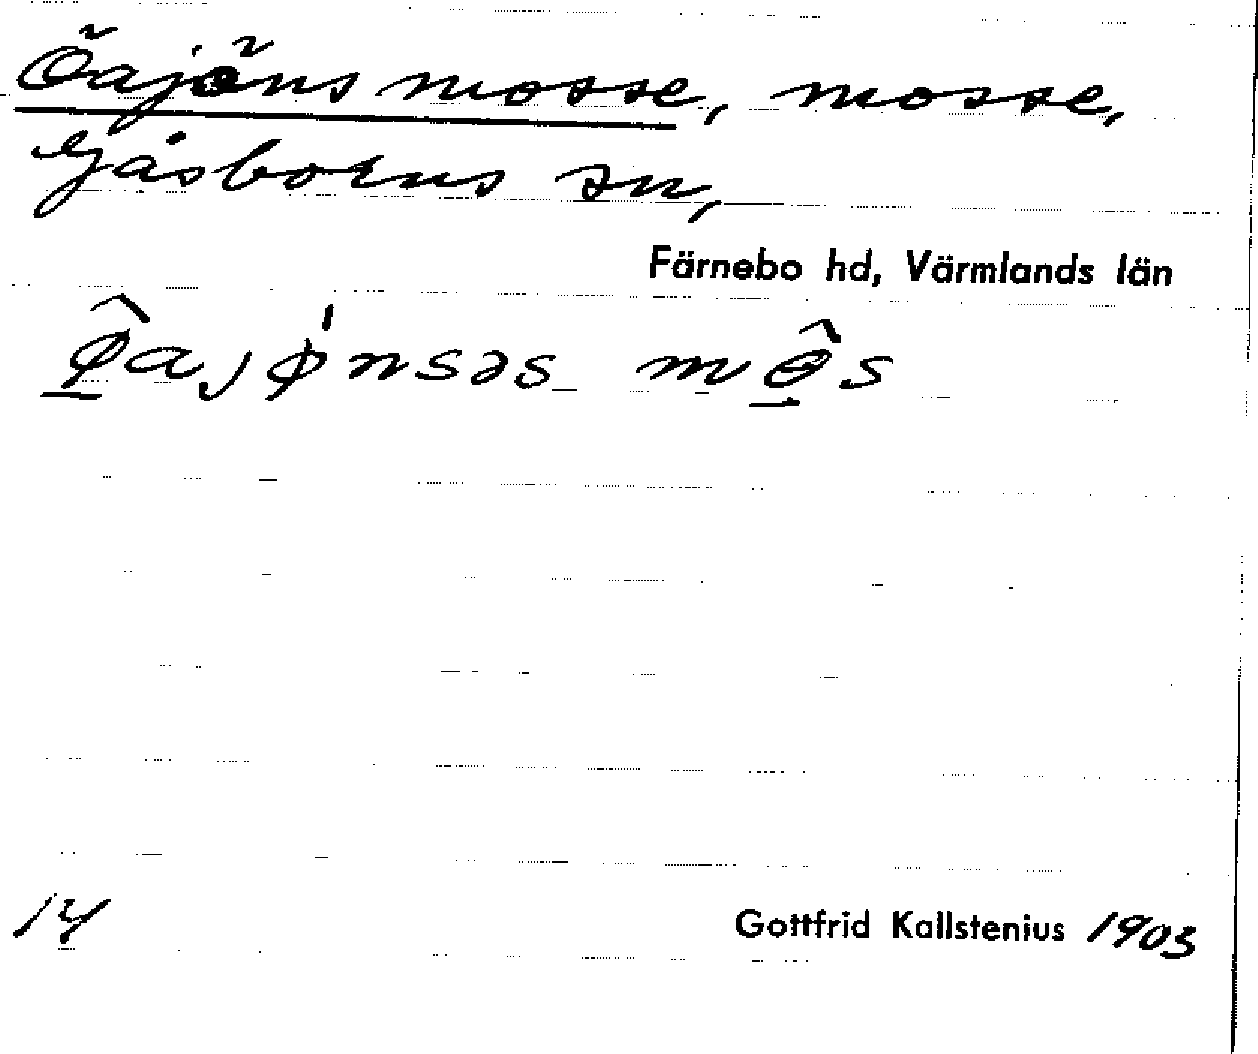 Öajöns mosse, mosse,
Gåsborns sn,
Färnebo hd, Värmlands län
14
Gottfrid Kallstenius 1903